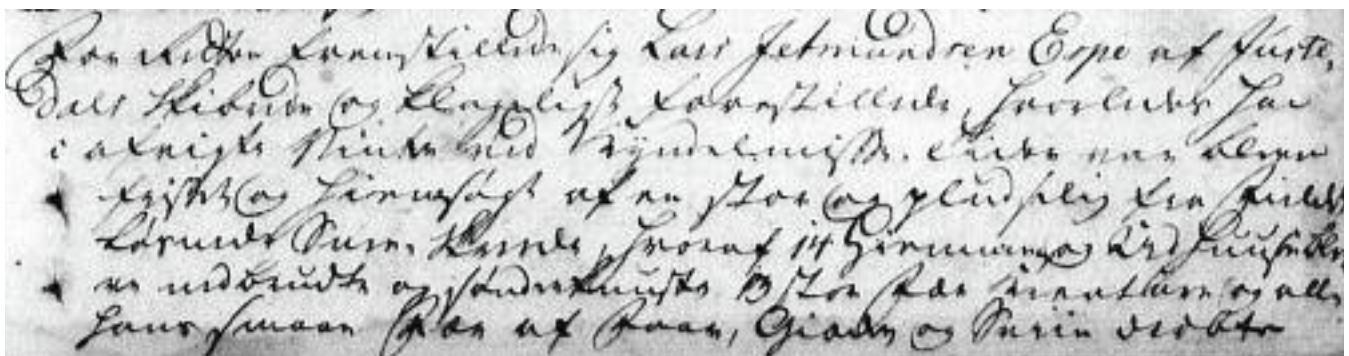 For Retten fremstillede sig Lars Jetmundsen Espe af Juste,
dals Skibrede og klageligst forestillede, hvorledes han
i afvigte Vinter ved Kyndelmisse Tider var bleven
fristet og hiemsøgt af en stor og pludselig fra Fieldet
kommende Snee Skrede, hvoraf 14 Hiemme og Ud Huuse ble,
ve nedbrudte og sønderknuste 13 stor Fæe Creature og alle
hans smaae Fæe af Faar, Gieder og Sviin dræbte